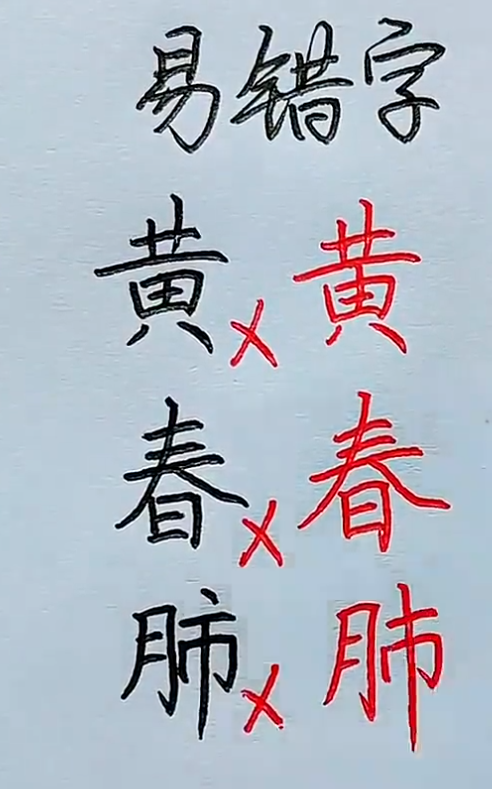 易错字
黄 x 黄
春 x 春
肺 x 肺